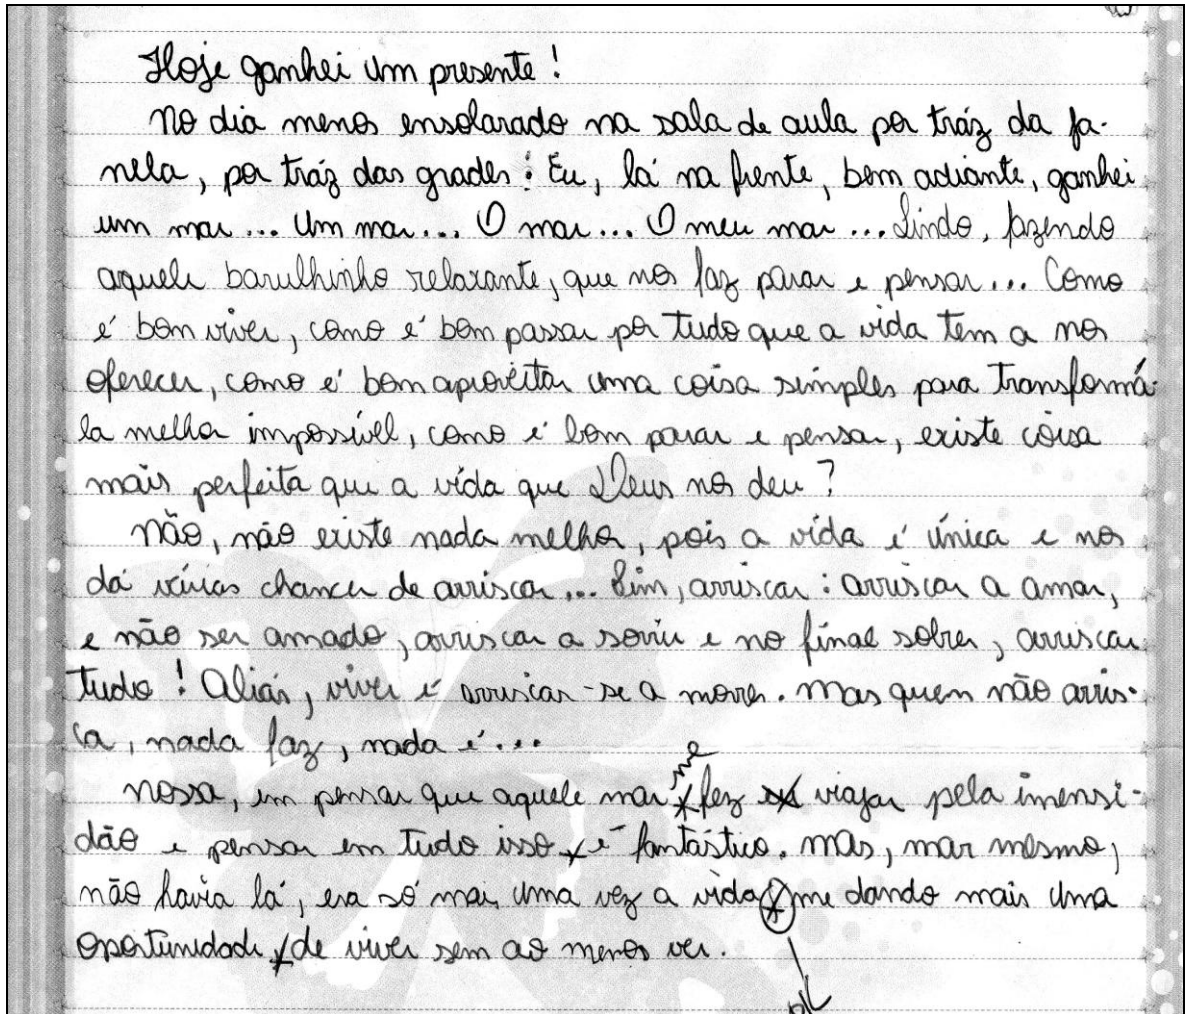 Hoje ganhei um presente!
No dia menos ensolarado na sala de aula por tráz da ja-
nela, por tráz das grades: Eu, lá na frente, bem adiante, ganhei
um mar... Um mar... O mar... O meu mar... Lindo, fazendo
aquele barulhinho relaxante, que nos faz parar e pensar... Como
é bom viver, como é bom passar por tudo que a vida tem a nos
oferecer, como é bom aproveitar uma coisa simples para transformá-
la melhor impossível, como é bom parar e pensar, existe coisa
mais perfeita que a vida que Deus nos deu?
Não, não existe nada melhor, pois a vida é única e nos
dá várias chances de arriscar... Sim, arriscar: arriscar a amar,
e não ser amado, arriscar a sorrir e no final sofrer, arriscar
tudo! Aliás, viver é arriscar-se a morrer. Mas quem não arris-
ca, nada faz, nada é...
Nossa, em pensar que aquele mar me fez viajar pela imensi-
dão e pensar em tudo isso é fantástico. Mas, mar mesmo,
não havia lá, era só mais uma vez a vida me dando mais uma
oportunidade de viver sem ao menos ver.